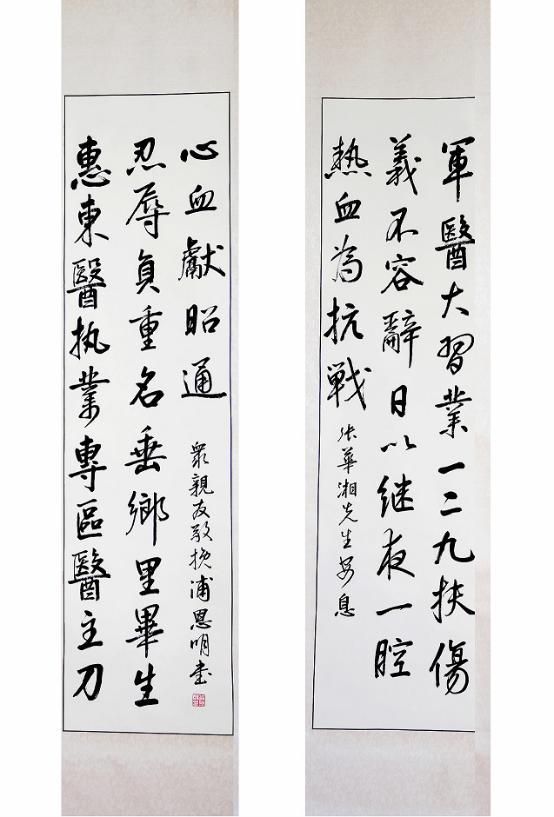 軍醫大習業一二九扶傷
義不容辭日以继夜一腔
熱血為抗戦
张華湘先生安息
惠東醫执業專區醫主刀
忍辱負重名垂鄉里畢生
心血獻昭通
衆親友敬挽浦恩明书